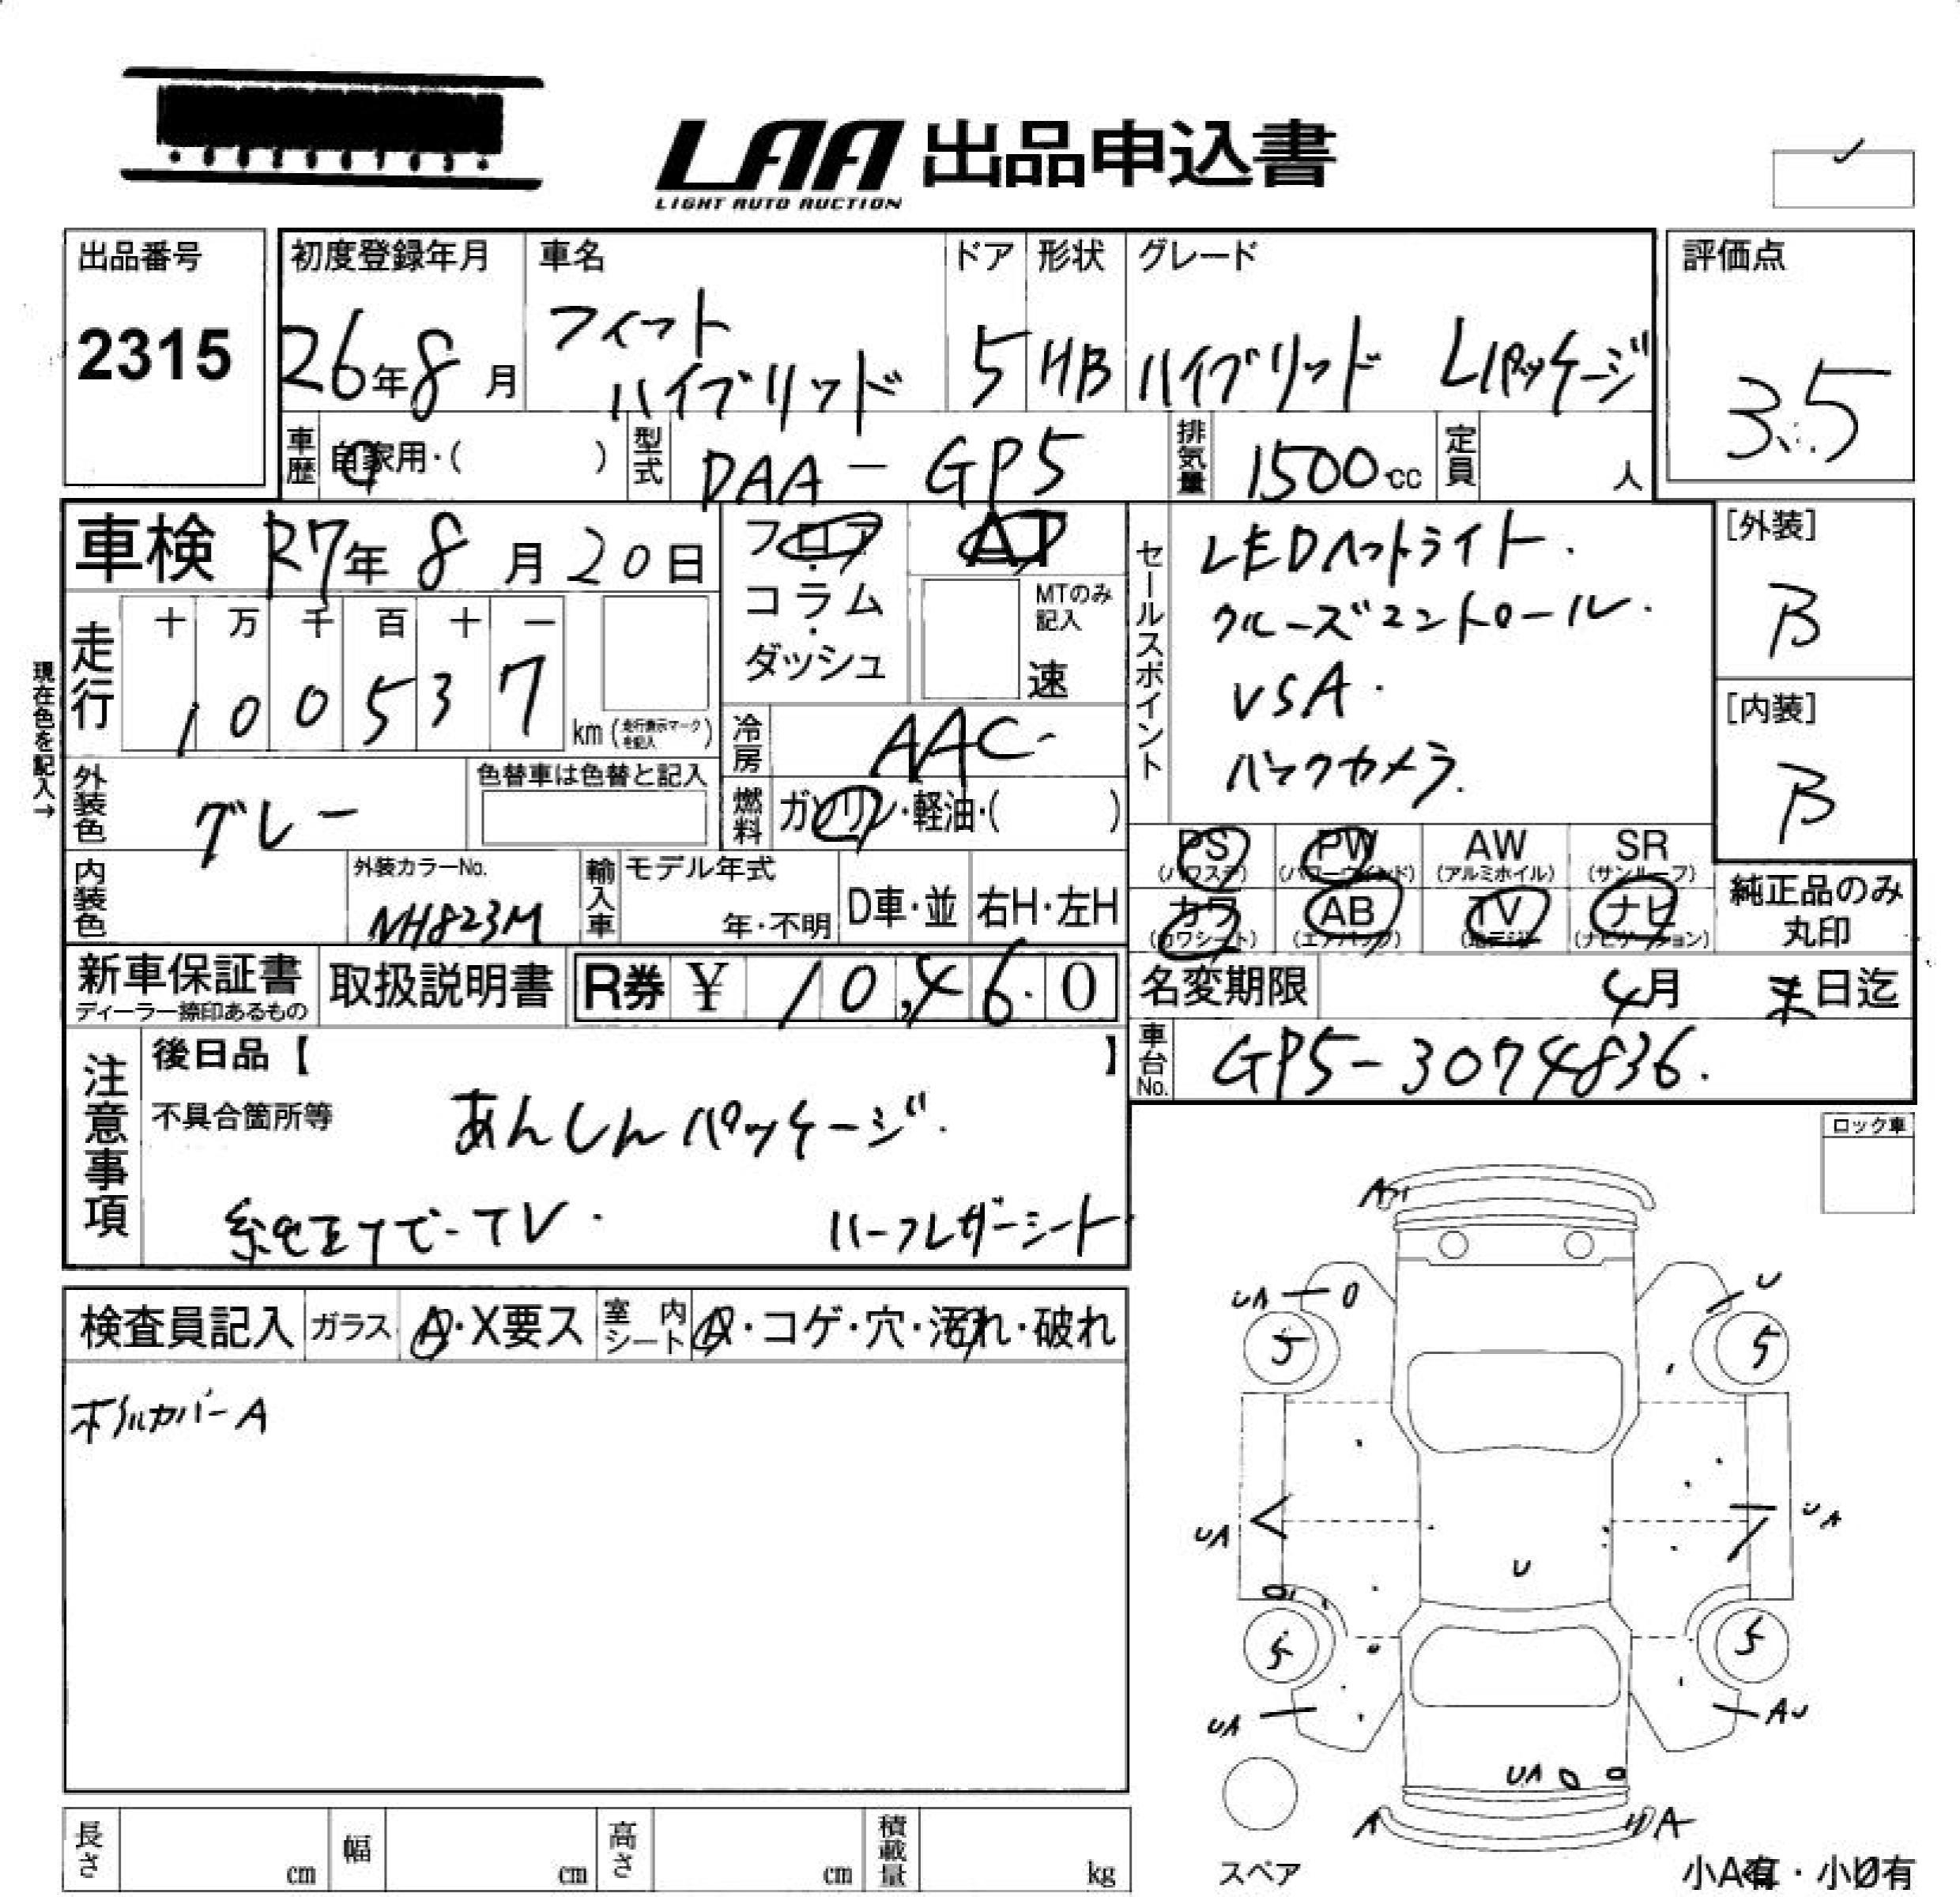 LAA 出品申込書
LIGHT AUTO AUCTION
出品番号
2315
初度登録年月
26年8月
車名
フィット
ハイブリッド
ドア
5
形状
HB
グレード
ハイブリッド Lパッケージ
評価点
3.5
車歴 自家用・( )
型式 DAA-GP5
排気量 1500cc
定員 人
車検 R7年8月20日
フロア・コラム・ダッシュ
AT
MTのみ記入
速
走行 十 万 千 百 十 一
1 0 0 5 3 7 km (走行表示マークを記入)
現在色を記入→
外装色 グレー
色替車は色替と記入
冷房 AAC
燃料 ガソリン・軽油・( )
内装色
外装カラーNo.
NH823M
輸入車
モデル年式
年・不明
D車・並
右H・左H
セールスポイント
LEDヘットライト.
クルーズコントロール.
VSA.
バックカメラ.
[外装]
B
[内装]
B
PS (パワステ) PW (パワーウィンド) AW (アルミホイル) SR (サンルーフ)
カワ (カワシート) AB (エアバッグ) TV (地デジ) ナビ (ナビゲーション)
純正品のみ丸印
新車保証書
ディーラー捺印あるもの
取扱説明書
R券 ¥ 10,460
名変期限 4月 末日迄
車台No. GP5-3074836.
注意事項
後日品【 】
不具合箇所等
あんしんパッケージ.
純正ナビ-TV. ハーフレザーシート
ロック車
検査員記入
ガラス A・X要ス
室内シート A・コゲ・穴・汚れ・破れ
ホイルカバーA
A
UA
U
5
5
UA
UA
U
5
5
UA
AU
UA
A
A
スペア
小A有・小U有
長さ cm
幅 cm
高さ cm
積載量 kg